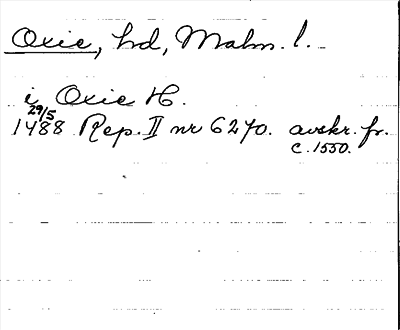 Oxie, hd, Malm. l.
i Oxie H.
29/5
1488 Rep. II nr 6270. avskr. fr.
c. 1550.